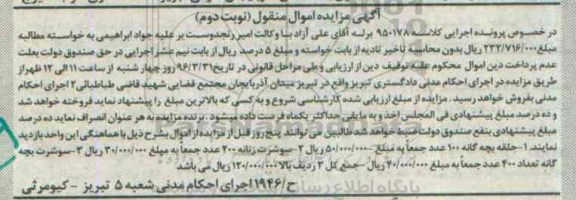 آگهی مزایده اموال منقول (نوبت دوم)
در خصوص پرونده اجرایی کلاسه ۹۵۰۱۷۸ برله آقای علی آزاد بیا وکالت امیر رنجدوست بر علیه جواد ابراهیمی به خواسته مطالبه
مبلغ ۲۳۲/۷۱۶/۰۰۰ ریال بدون محاسبه تاخیر تادیه از بابت خواسته و مبلغ ۵ درصد ریال از بابت نیم عشر اجرایی در حق صندوق دولت بعلت
عدم پرداخت دین اموال محکوم علیه توقیف دین از ارزیابی و طی مراحل قانونی در تاریخ ۹۶/۳/۳۱ روز چهار شنبه از ساعت ۱۱ الی ۱۲ ظهر از
طریق مزایده در اجرای احکام مدنی دادگستری تبریز واقع در تبریز میدان آذربایجان مجتمع قضایی شهید قاضی طباطبائی ۲ اجرای احکام
مدنی بفروش خواهد رسید. مزایده از مبلغ ارزیابی شده کارشناسی شروع و به کسی که بالاترین مبلغ را پیشنهاد نماید فروخته خواهد شد
و ده درصد مبلغ پیشنهادی فی المجلس اخذ و به مابقی حداکثر یکماه فرصت داده میشود. برنده مزایده به هر عنوان انصراف نماید ده درصد
مبلغ پیشنهادی بنفع صندوق دولت ضبط خواهد شد طالبین می توانند پنج روز قبل از مزایده از اموال بشرح ذیل با هماهنگی این واحد بازدید
نمایند ۱-حلقه بچه گانه ۱۰۰ عدد جمعا به مبلغ ۵۰/۰۰۰/۰۰۰ ریال ۲-سوشرت زنانه ۲۰۰ عدد جمعا به مبلغ ۳۰/۰۰۰/۰۰۰ ریال ۳-سوشرت بچه
گانه تعداد ۴۰۰ عدد جمعا به مبلغ ۴۰/۰۰۰/۰۰۰ ریال - جمع کل ۳ ردیف بالا ۱۲۰/۰۰۰/۰۰۰ ریال می باشد
ح/۱۹۴۶ اجرای احکام مدنی شعبه ۵ تبریز - کیومرثی